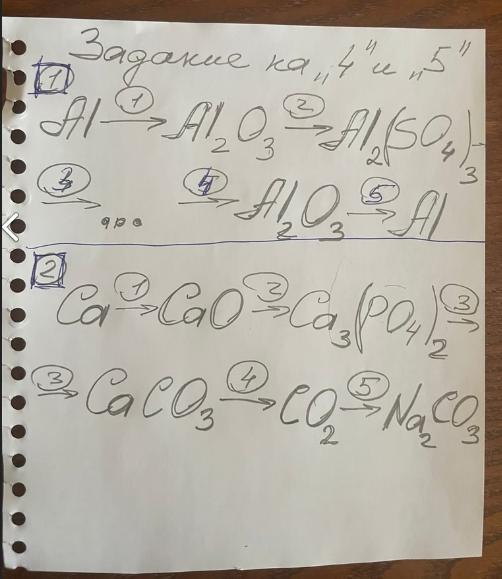 Задание на „4" и „5"
1
Al ①→ Al₂O₃ ②→ Al₂(SO₄)₃ -
③→ ... ④→ Al₂O₃ ⑤→ Al
2
Ca ①→ CaO ②→ Ca₃(PO₄)₂ ③→
③→ CaCO₃ ④→ CO₂ ⑤→ Na₂CO₃